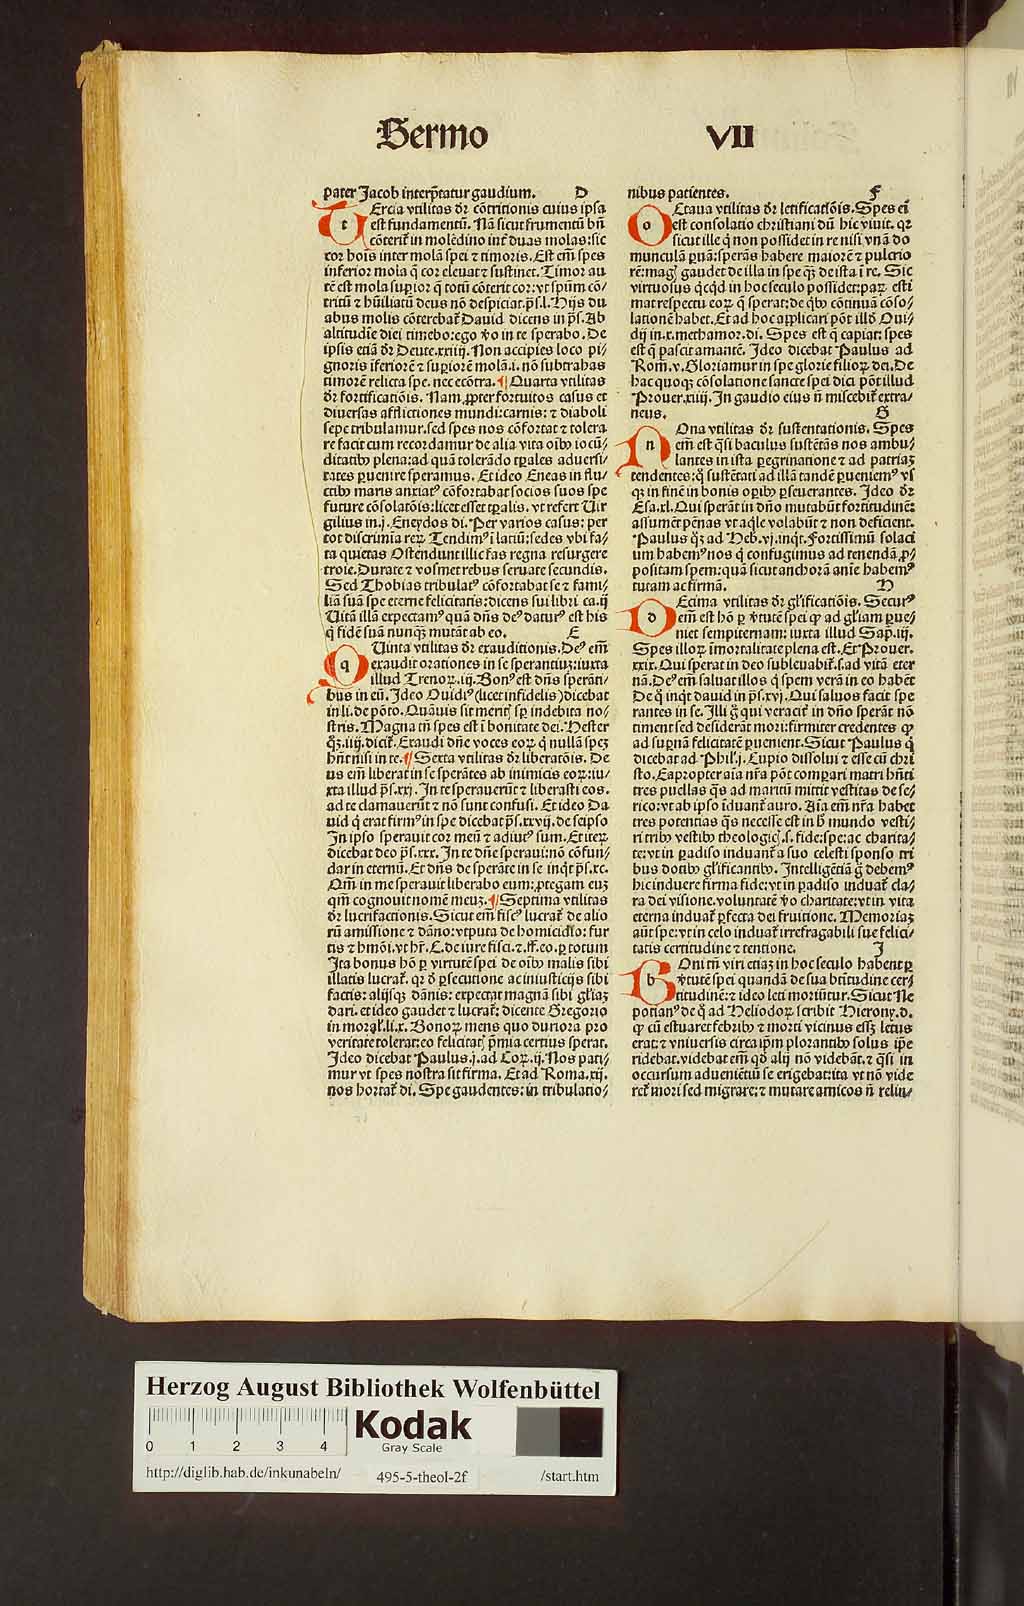 Sermo VII
pater Jacob interp̄tatur gaudium. D
TErcia vtilitas dr̄ cōtritionis cuius ipsa
est fundamentū. Nā sicut frumentū bn̄
cōterit̄ in molēdino int̄ duas molas: sic
cor hoīs inter molā spei ⁊ timoris. Est em̄ spes
inferior mola q̄ cor eleuat ⁊ sustinet. Timor au
tē est mola suꝑior q̄ totū cōterit cor: vt spūm cō-
tritū ⁊ hūiliatū deus nō despiciat. ps̄. l. Hijs du
abus molis cōterebat̄ Dauid dicens in ps̄. Ab
altitudīe diei timebo: ego v̄o in te sperabo. De
ipsis etiā dr̄ Deute. xxiiij. Non accipies loco pi/
gnoris īferiorē ⁊ suꝑiorē molā. i. nō subtrahas
timorē relicta spe. nec ecōtra. ¶ Quarta vtilitas
dr̄ fortificatiōis. Nam ꝓpter fortuitos casus et
diuersas afflictiones mundi: carnis: ⁊ diaboli
sepe tribulamur. sed spes nos cōfortat ⁊ tolera
re facit cum recordamur de alia vita oībꝰ iocū/
ditatibꝰ plena: ad quā tolerādo tꝑales aduersi/
tates ꝑuenire speramus. Et ideo Eneas in flu/
ctibꝰ maris anxiatꝰ cōfortabat socios suos spe
future cōsolatōis: licet esset tꝑalis. vt refert Uir
gilius in. j. Eneydos di. Per varios casus: per
tot discrimīa reꝝ Tendimꝰ ī latiū: sedes vbi fa/
ta quietas Ostendunt illic fas regna resurgere
troie. Durate ⁊ vosmet rebus seruate secundis.
Sed Thobias tribulatꝰ cōfortabat se ⁊ fami/
liā suā spe eterne felicitatis: dicens sui libri ca. ij
Uitā illā expectamꝰ quā dn̄s deꝰ daturꝰ est his
q̄ fidē suā nunqꝫ mutāt ab eo. E
QUinta vtilitas dr̄ exauditionis. Deꝰ em̄
exaudit orationes in se sperantiuꝫ: iuxta
illud Trenoꝝ. iij. Bonꝰ est dn̄s sperāti/
bus in eū. Ideo Ouidiꝰ (licet infidelis) dicebat
in li. de pōto. Quāuis sit meritꝭ sꝑ indebita no/
stris. Magna tn̄ spes est ī bonitate dei. Hester
qꝫ. iiij. dicit̄. Exaudi dn̄e voces eoꝝ q̄ nullā speꝫ
hn̄t nisi in te. ¶ Sexta vtilitas dr̄ liberatōis. De
us em̄ liberat in se sperātes ab inimicis eoꝝ: iu/
xta illud ps̄. xxj. In te sperauerūt ⁊ liberasti eos.
ad te clamauerūt ⁊ nō sunt confusi. Et ideo Da
uid q̄ erat firmꝰ in spe dicebat ps̄. xxvij. de seipso
In ipso sperauit cor meū ⁊ adiutꝰ sum. Et iteꝝ
dicebat deo ps̄. xxx. In te dn̄e speraui: nō cōfun/
dar in eternū. Et dn̄s de sperāte in se inqt̄ ps̄. xc.
Qm̄ in me sperauit liberabo eum: ꝓtegam euꝫ
qm̄ cognouit nomē meuꝫ. ¶ Septima vtilitas
dr̄ lucrifactionis. Sicut em̄ fiscꝰ lucrat̄ de alio
rū amissione ⁊ dāno: vtputa de homicidio: fur
tis ⁊ hmōi. vt hr̄. C. de iure fisci. ⁊ ff. eo. ꝑ totum
Ita bonus hō ꝑ virtutē spei de oībꝰ malis sibi
illatis lucrat̄. qr̄ d̄ ꝑsecutione ac iniusticijs sibi
factis: alijsqꝫ dānis: expectat magnā sibi gl̄iaꝫ
dari. et ideo gaudet ⁊ lucrat̄: dicente Gregorio
in moral̄. li. x. Bonoꝝ mens quo duriora pro
veritate tolerat: eo felicitatꝭ p̄mia certius sperat.
Ideo dicebat Paulus. j. ad Coꝝ. ij. Nos pati/
mur vt spes nostra sit firma. Et ad Roma. xij.
nos hortat̄ di. Spe gaudentes: in tribulatio/
nibus patientes. F
OCtaua vtilitas dr̄ letificatiōis. Spes ei
est consolatio christiani dū hic viuit. qr̄
sicut ille q̄ non possidet in re nisi vnā do
munculā ꝑuā: sperās habere maiorē ⁊ pulcrio
rē: magꝭ gaudet de illa in spe qꝫ de ista ī re. Sic
virtuosus qcqd in hoc seculo possidet: paꝝ esti
mat respectu eoꝝ q̄ sperat: de qbꝰ cōtinuā cōso/
lationē habet. Et ad hoc applicari pōt illd̄ Oui/
dij in. x. methamor. di. Spes est q̄ capiat: spes
est q̄ pascit amantē. Ideo dicebat Paulus ad
Rom. v. Gloriamur in spe glorie filioꝝ dei. De
hac quoqꝫ cōsolatione sancte spei dici pōt illud
Prouer. xiiij. In gaudio eius n̄ miscebit̄ extra/
neus. G
NOna vtilitas dr̄ sustentationis. Spes
em̄ est qsi baculus sustētās nos ambu/
lantes in ista ꝑegrinatione ⁊ ad patriaꝫ
tendentes: q̄ sustētati ad illā tandē ꝑueniemꝰ vs
qꝫ in finē in bonis oꝑibꝰ ꝑseuerantes. Ideo dr̄
Esa. xl. Qui sperāt in dn̄o mutabūt fortitudinē:
assumēt pēnas vt aqle volabūt ⁊ non deficient.
Paulus qꝫ ad Heb. vj. inqt. Fortissimū solaci
um habemꝰ nos q̄ confugimus ad tenendā ꝓ/
positam spem: quā sicut anchorā anīe habemꝰ
tutam ac firmā. H
DEcima vtilitas dr̄ gl̄ificatiōis. Securꝰ
em̄ est hō ꝑ v̄tutē spei ꝙ ad gl̄iam ꝑue/
niet sempiternam: iuxta illud Sap. iij.
Spes illoꝝ īmortalitate plena est. Et Prouer.
xxix. Qui sperat in deo subleuabit̄. s. ad vitā eter
nā. Deꝰ em̄ saluat illos q̄ spem verā in eo habēt
De q̄ inqt dauid in ps̄. xvj. Qui saluos facit spe
rantes in se. Illi g̊ qui veracit̄ in dn̄o sperāt nō
timent sed desiderāt mori: firmiter credentes ꝙ
ad supnā felicitatē ꝑuenient. Sicut Paulus q̄
dicebat ad Phil̄. j. Cupio dissolui ⁊ esse cū chri
sto. Eapropter aīa nr̄a pōt compari matri hn̄ti
tres puellas q̄s ad maritū mittit vestitas de se/
rico: vt ab ipso īduant̄ auro. Aīa em̄ nr̄a habet
tres potentias q̄s necesse est in h̄ mundo vesti/
ri tribꝰ vestibꝰ theologicꝭ. s. fide: spe: ac charita/
te: vt in ꝑadiso induant̄ a suo celesti sponso tri
bus dotibꝰ gl̄ificantibꝰ. Intelligētiā g̊ debemꝰ
hic induere firma fide: vt in ꝑadiso induat̄ cla/
ra dei visione. voluntatē v̄o charitate: vt in vita
eterna induat̄ ꝑfecta dei fruitione. Memoriaꝫ
aūt spe: vt in celo induat̄ irrefragabili sue felici/
tatis certitudine ⁊ tentione. J
BOni tn̄ viri etiaꝫ in hoc seculo habent ꝑ
v̄tutē spei quandā de sua bt̄itudine cer/
titudinē: ⁊ ideo leti moriūtur. Sicut Ne
potianꝰ de q̄ ad Heliodoꝝ scribit Hierony. d.
ꝙ cū estuaret febribꝰ ⁊ morti vicinus esꝫ letus
erat: ⁊ vniuersis circa ip̄m plorantibꝰ solus ip̄e
ridebat. videbat em̄ qd̄ alij nō videbāt. ⁊ qsi in
occursum aduenientiū se erigebat: ita vt nō vide
ret̄ mori sed migrare: ⁊ mutare amicos n̄ relin/
Herzog August Bibliothek Wolfenbüttel
0 1 2 3 4
Kodak
Gray Scale
http://diglib.hab.de/inkunabeln/ 495-5-theol-2f /start.htm